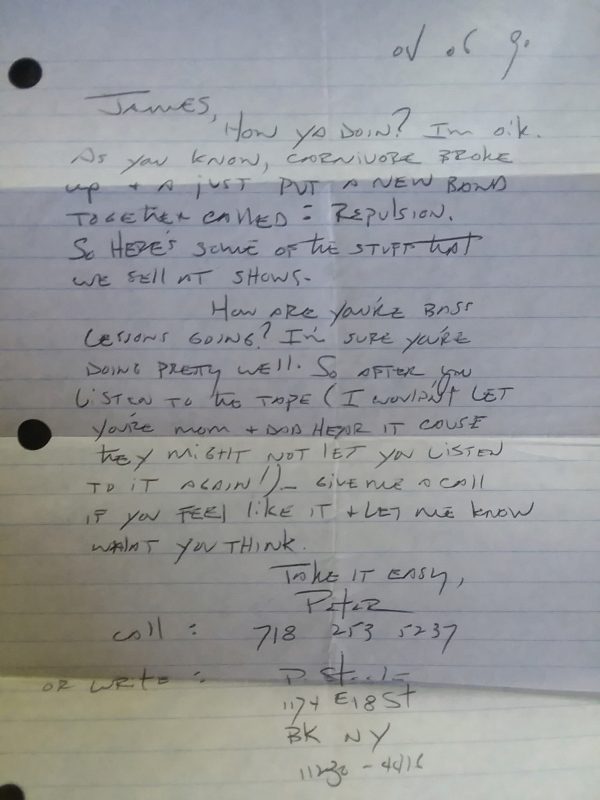 JAMES,
HOW YA DOIN? I'm o.k.
AS YOU KNOW, CARNIVORE BROKE
up + a just PUT A NEW BAND
TOGETHER CALLED = REPULSION.
SO HERE'S SOME OF the STUFF that
WE SELL AT SHOWS.
HOW ARE YOU'RE BASS
LESSONS GOING? I'm SURE YOU'RE
DOING PRETTY WELL. SO AFTER you
LISTEN TO the TAPE (I WOULDN't LET
YOU'RE MOM + DAD HEAR IT CAUSE
they MIGHT NOT LET YOU LISTEN
TO IT AGAIN!)_ GIVE ME A CALL
IF YOU FEEL LIKE IT + LET ME KNOW
WHAT YOU THINK.
TAKE IT EASY,
PETER
call : 718 253 5237
OR WRITE : P. Steele
1174 E18 St
BK NY